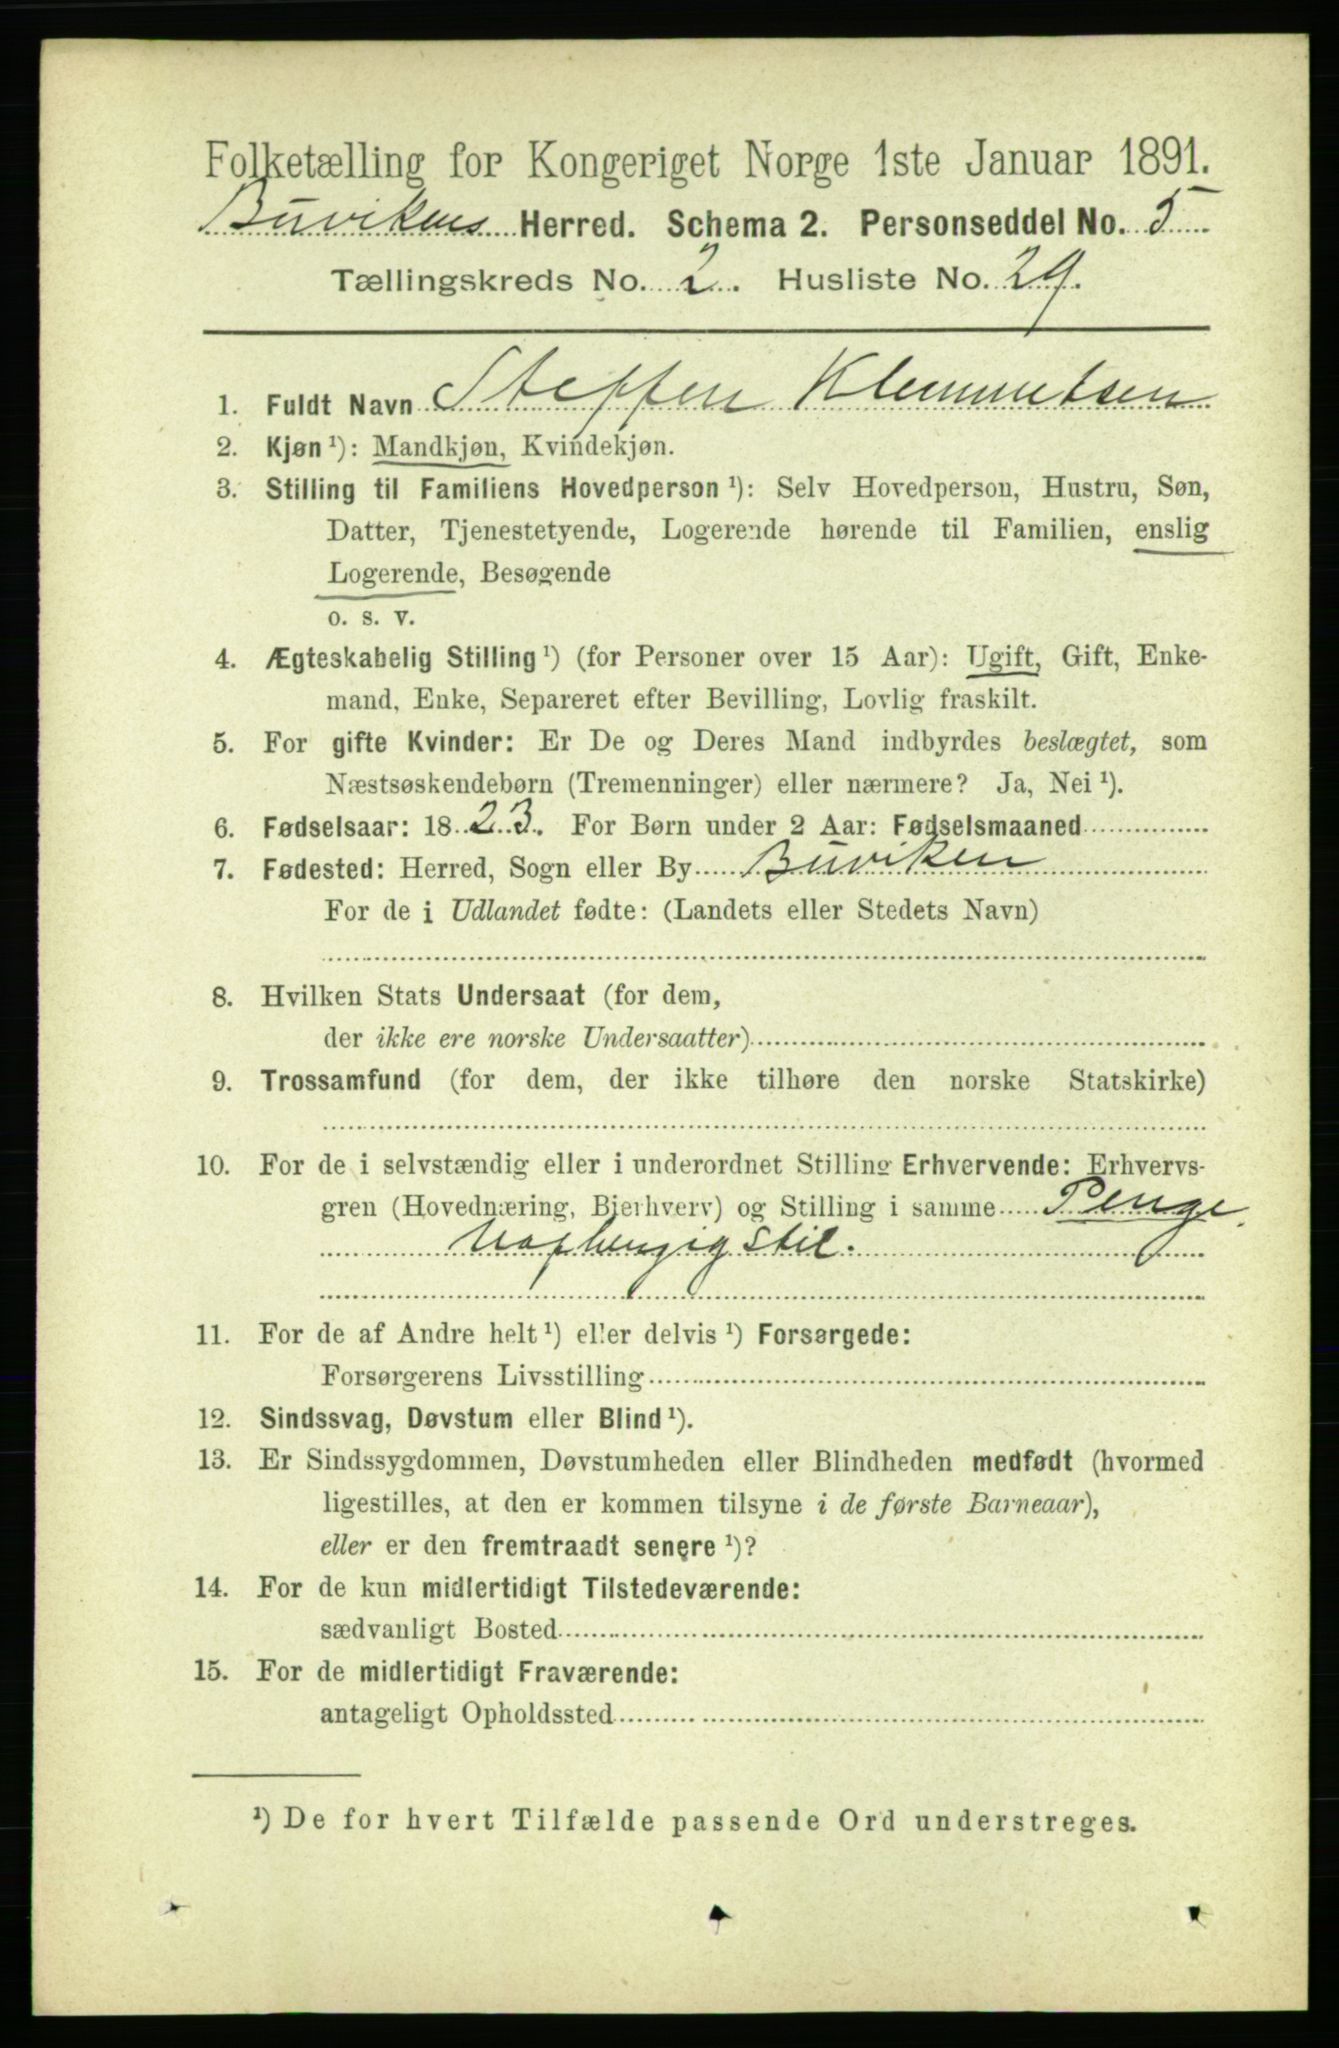 Folketælling for Kongeriget Norge 1ste Januar 1891.
Buvikens Herred. Schema 2. Personseddel No. 5
Tællingskreds No. 2. Husliste No. 29.
1. Fuldt Navn Steffen Klemmetsen
2. Kjøn ¹): Mandkjøn, Kvindekjøn.
3. Stilling til Familiens Hovedperson ¹): Selv Hovedperson, Hustru, Søn,
Datter, Tjenestetyende, Logerende hørende til Familien, enslig
Logerende, Besøgende
o. s. v.
4. Ægteskabelig Stilling ¹) (for Personer over 15 Aar): Ugift, Gift, Enke-
mand, Enke, Separeret efter Bevilling, Lovlig fraskilt.
5. For gifte Kvinder: Er De og Deres Mand indbyrdes beslægtet, som
Næstsøskendebørn (Tremenninger) eller nærmere? Ja, Nei ¹).
6. Fødselsaar: 1823. For Børn under 2 Aar: Fødselsmaaned
7. Fødested: Herred, Sogn eller By Buviken
For de i Udlandet fødte: (Landets eller Stedets Navn)
8. Hvilken Stats Undersaat (for dem,
der ikke ere norske Undersaatter)
9. Trossamfund (for dem, der ikke tilhøre den norske Statskirke)
10. For de i selvstændig eller i underordnet Stilling Erhvervende: Erhvervs-
gren (Hovednæring, Bierhverv) og Stilling i samme Penge
Uafhengig Stil.
11. For de af Andre helt ¹) eller delvis ¹) Forsørgede:
Forsørgerens Livsstilling
12. Sindssvag, Døvstum eller Blind ¹).
13. Er Sindssygdommen, Døvstumheden eller Blindheden medfødt (hvormed
ligestilles, at den er kommen tilsyne i de første Barneaar),
eller er den fremtraadt senere ¹)?
14. For de kun midlertidigt Tilstedeværende:
sædvanligt Bosted
15. For de midlertidigt Fraværende:
antageligt Opholdssted
¹) De for hvert Tilfælde passende Ord understreges.